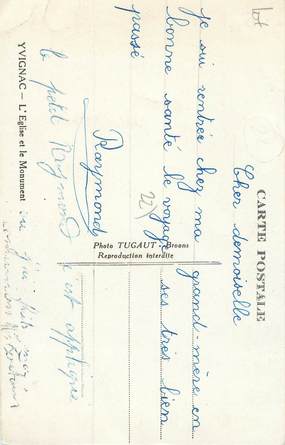 CARTE POSTALE
Cher demoiselle
je sui rentrée chez ma grand-mère en
bonne santé le voyage ses très bien
passé
Raymond
22)
Photo TUGAUT - Broons
Reproduction interdite
le petit Raymond
s'est appliqué
YVIGNAC — L'Eglise et le Monument
lot